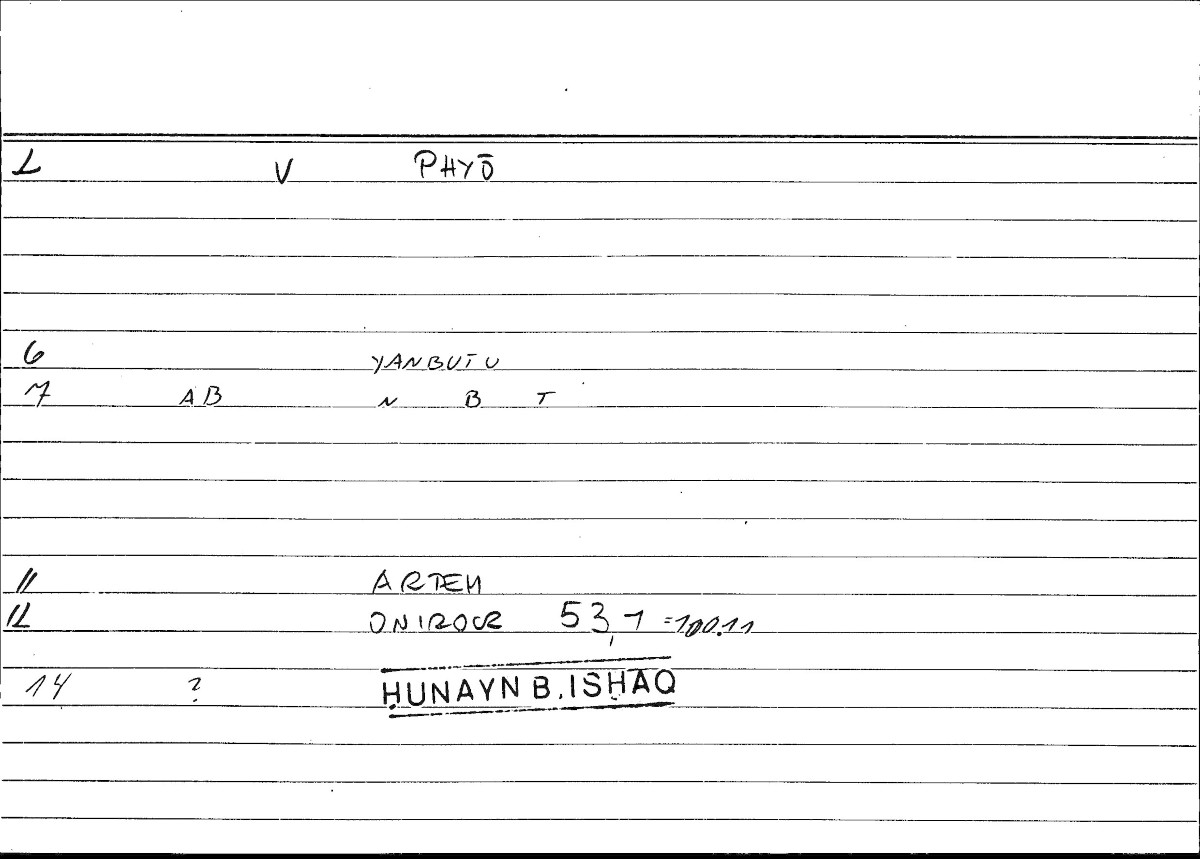 2 V PHYŌ
6 YANBUTU
7 AB N B T
11 ARTEM
12 ONIROCR 53,1 =100.11
14 ? ḤUNAYN B. ISḤAQ